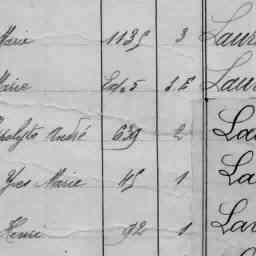 Marie 1135 3 Laur
Marie 5 Laur
Hippolyte André 639 2 La
Yves Marie 45 1 La
Henri 92 1 Lar